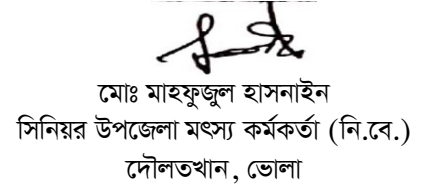 মোঃ মাহফুজুল হাসনাইন
সিনিয়র উপজেলা মৎস্য কর্মকর্তা (নি.বে.)
দৌলতখান, ভোলা